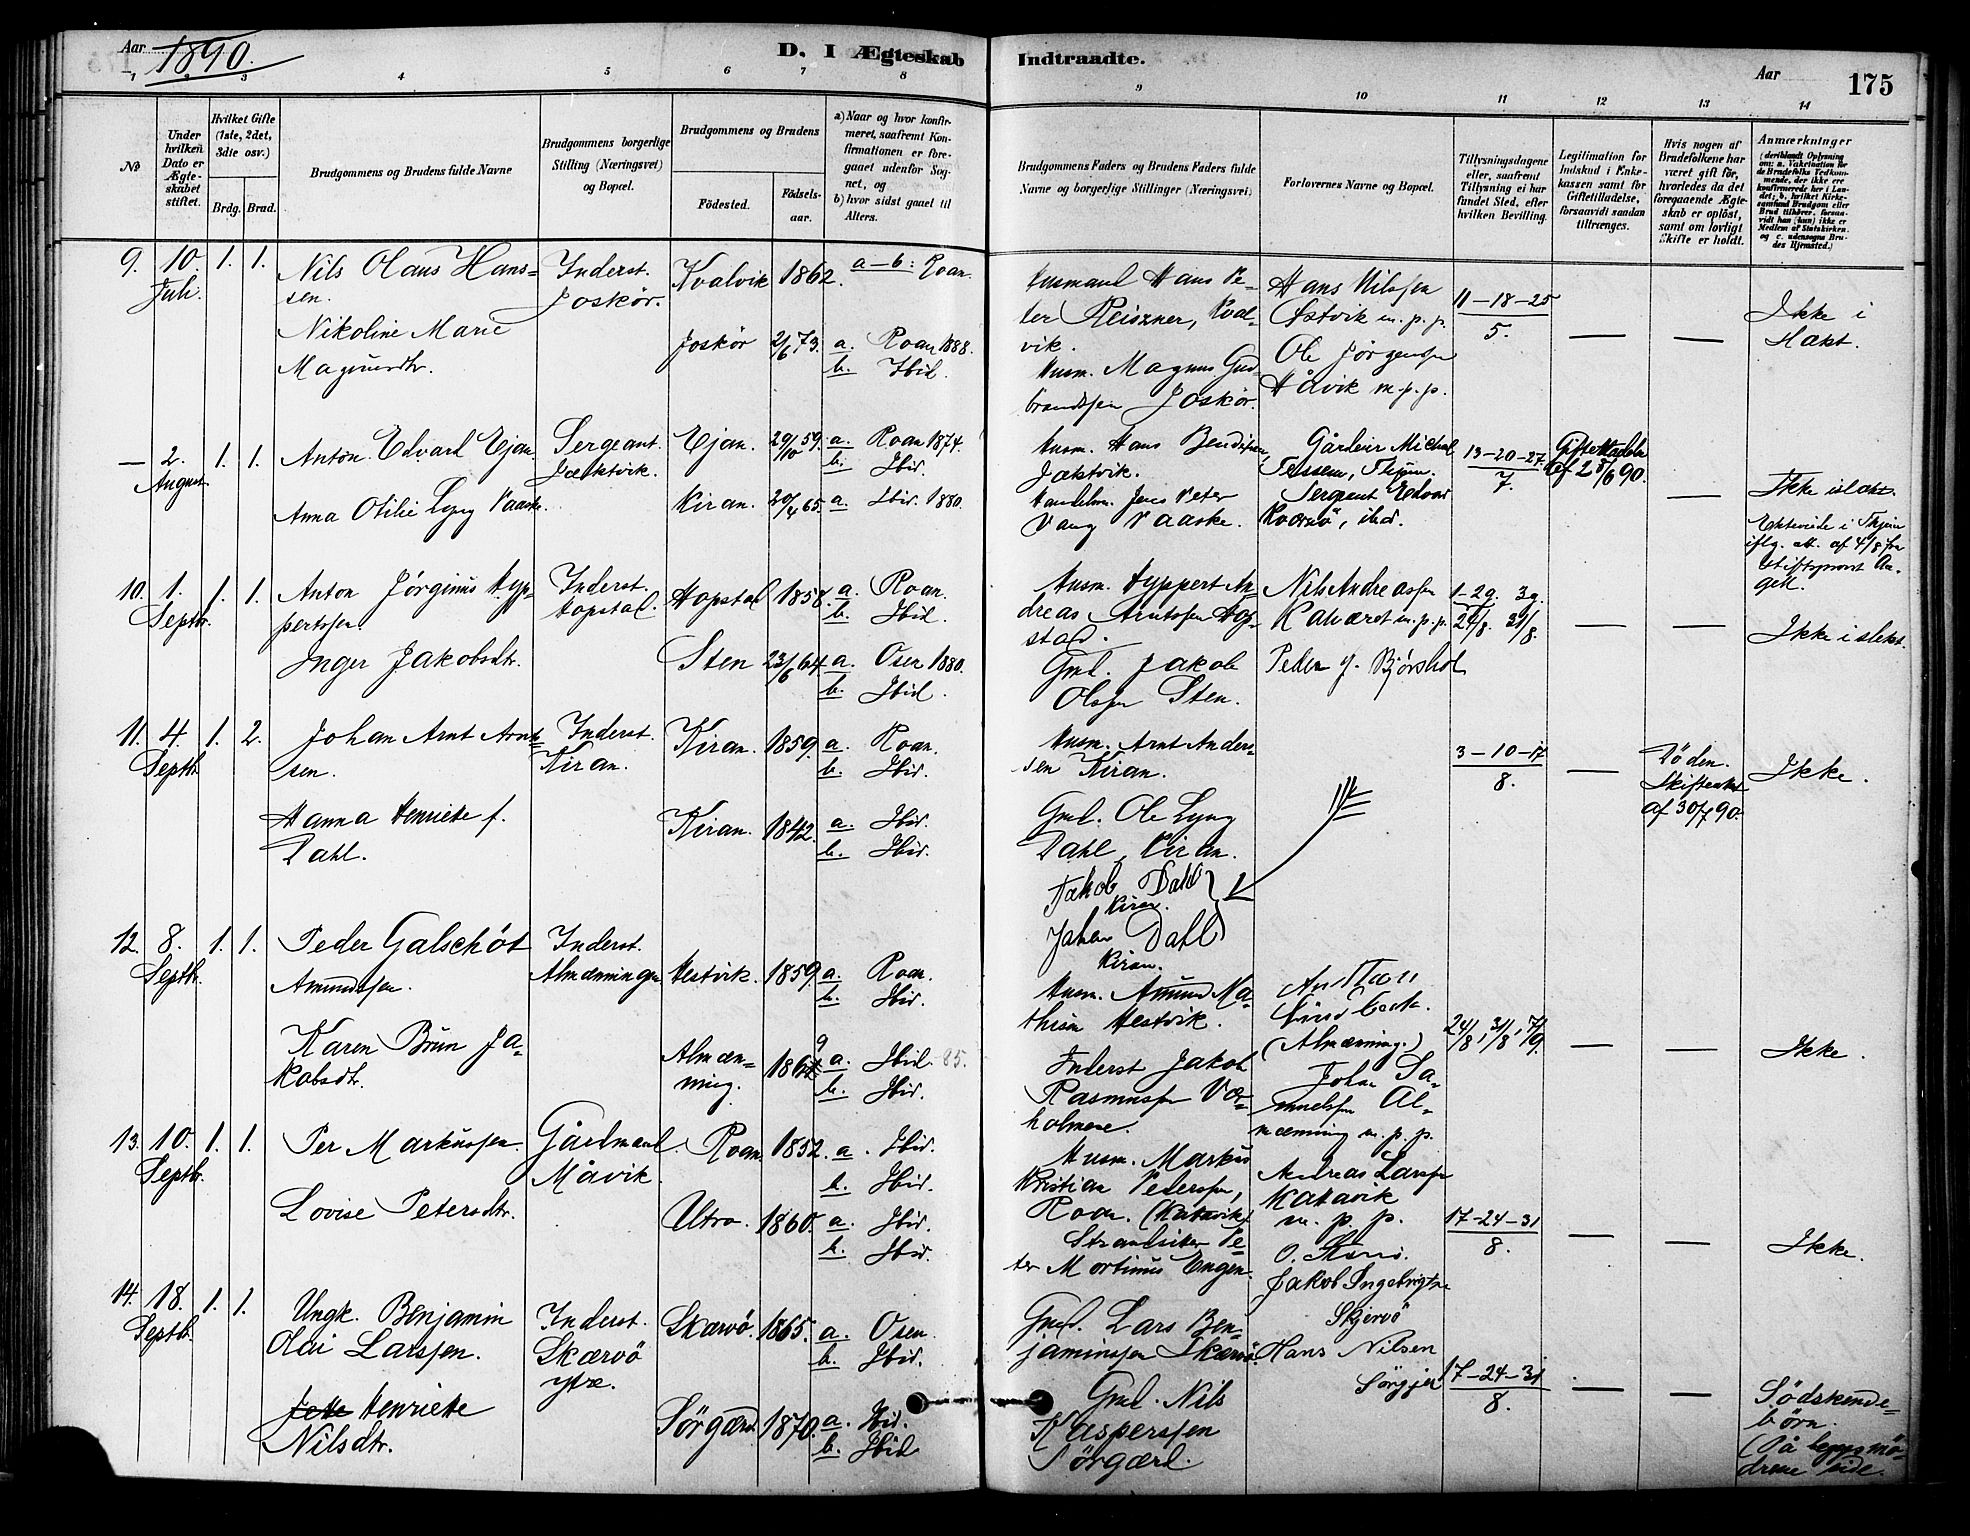 Aar 1890.
D. I Ægteskab Indtraadte.
Aar 175
1 2 3 4 5 6 7 8 9 10 11 12 13 14
No
Under hvilken Dato er Ægteskabet stiftet.
Hvilket Gifte (1ste, 2det, 3die osv.)
Brdg. Brud.
Brudgommens og Brudens fulde Navne
Brudgommens borgerlige Stilling (Næringsvei) og Bopæl.
Brudgommens og Brudens
Fødested. Fødselsaar.
a) Naar og hvor konfirmeret, saafremt Konfirmationen er foregaaet udenfor Sognet, og
b) hvor sidst gaaet til Alters.
Brudgommens Faders og Brudens Faders fulde Navne og borgerlige Stillinger (Næringsvei)
Forlovernes Navne og Bopæl.
Tillysningsdagene eller, saafremt Tillysning ei har fundet Sted, efter hvilken Bevilling.
Legitimation for Indskud i Enkekassen samt for Giftetilladelse, forsaavidt saadan tiltrænges.
Hvis nogen af Brudefolkene har været gift før, hvorledes da det foregaaende Ægteskab er opløst, samt om lovligt Skifte er holdt.
Anmærkninger
9. 10. Juli. 1. 1.
Nils Olaus Hanssen.
Inderst. Joskør.
Kvalvik 1862.
a–b: Roan.
Husmand Hans Peter Reiszner, Kvalvik.
Hans Nilssen Østvik m.p.p.
11–18–25
5.
— —
Ikke i Slækt.
Nikoline Marie Magnusdtr.
Joskør 2/6 73.
a. Roan 1888.
b. Ibid.
Husm. Magnus Gudbrandssen Joskør.
Ole Jørgensen Håvik m.p.p.
— 2. August. 1. 1.
Anton Edvard Ejan.
Sergeant. Jæktvik.
Ejan. 29/10 59.
a. Roan 1874.
b. Ibid.
Husm. Hans Bendiksen, Jæktvik.
13–20–27
7.
Giftetilladelse af 25/6 90.
—
Ikke i slækt.
Anna Otilie Lyng Vaaske.
Kiran. 20/4 65.
a. Ibid. 1880.
Handelsm. Jens Peter Vang Vaaske.
Sergeant Edvard
Ektevide i Thjem iflg. att. af 4/8 fra
10. 1. Septbr. 1. 1.
Anton Jørginus Hyppertssen.
Inderst. Hopstad.
Hopstad 1858.
a. Roan.
b. Ibid.
Husm. Hyppert Andreas Arntssen Hopstad.
Nils Andreassen
m.p.p.
1–2g. 3g.
24/8. 31/8.
— —
Ikke i slekt.
Inger Jakobsdtr.
Sten 23/6 64.
a. Osen 1880.
b. Ibid.
Gmd. Jakob Olsen Sten.
11. 4. Septbr. 1. 2.
Johan Arnt Arntssen.
Inderst. Kiran.
Kiran. 1859.
a. Roan.
b. Ibid.
Husm. Arnt Anderssen Kiran.
3–10–17
8.
—
Døden. Skifteakt af 30/7 90.
Ikke.
Hanna Henriette f. Dahl.
Kiran. 1842.
a. Ibid.
b. Ibid.
Gmd. Ole Lyng Dahl, Kiran.
Jakob Dahl Kiran.
Johan Dahl Kiran.
12. 8. Septbr. 1. 1.
Peder Galschøt Amundssen.
Inderst. Almænningen
Hestvik. 1859.
a. Roan.
b. Ibid.
Husm. Amund Mathisen Hestvik.
(Almænning.)
24/8, 31/8, 7/9.
— —
Ikke.
Karen Brun Jakobsdtr.
Almænning.
a. Ibid. 85.
b. Ibid.
Inderst Jakob Rasmussen Værholmene.
Johan Samuelsen Almænning m.p.p.
13. 10. Septbr. 1. 1.
Per Markussen.
Gårdmand. Måvik.
Roan. 1852.
a. Ibid.
b. Ibid.
Husm. Markus Kristian Pederssen, Roan. (Katavik)
Andreas Larssen Katavik m.p.p.
17–24–31
8.
— —
Ikke.
Lovise Petersdtr.
Utro. 1860.
a. Ibid.
b. Ibid.
Strandsitter Peter Mortinus Engen.
14. 18. Septbr. 1. 1.
Ungk. Benjamin Olai Larssen.
Inderst. Skærvø ytre.
Skærvø. 1865.
a. Osen.
b. Ibid.
Gmd. Lars Benjaminssen Skærvø.
Jakob Ingebrigtsen Skjervø
17–24–31
8.
— —
Sødskendebørn.
Henriette Nilsdtr.
Sørgærd. 1870.
a. Ibid.
b. Ibid
Gmd. Nils Kasperssen Sørgærd.
Hans Nilsen Sørgjer
(På begges mødrene side.